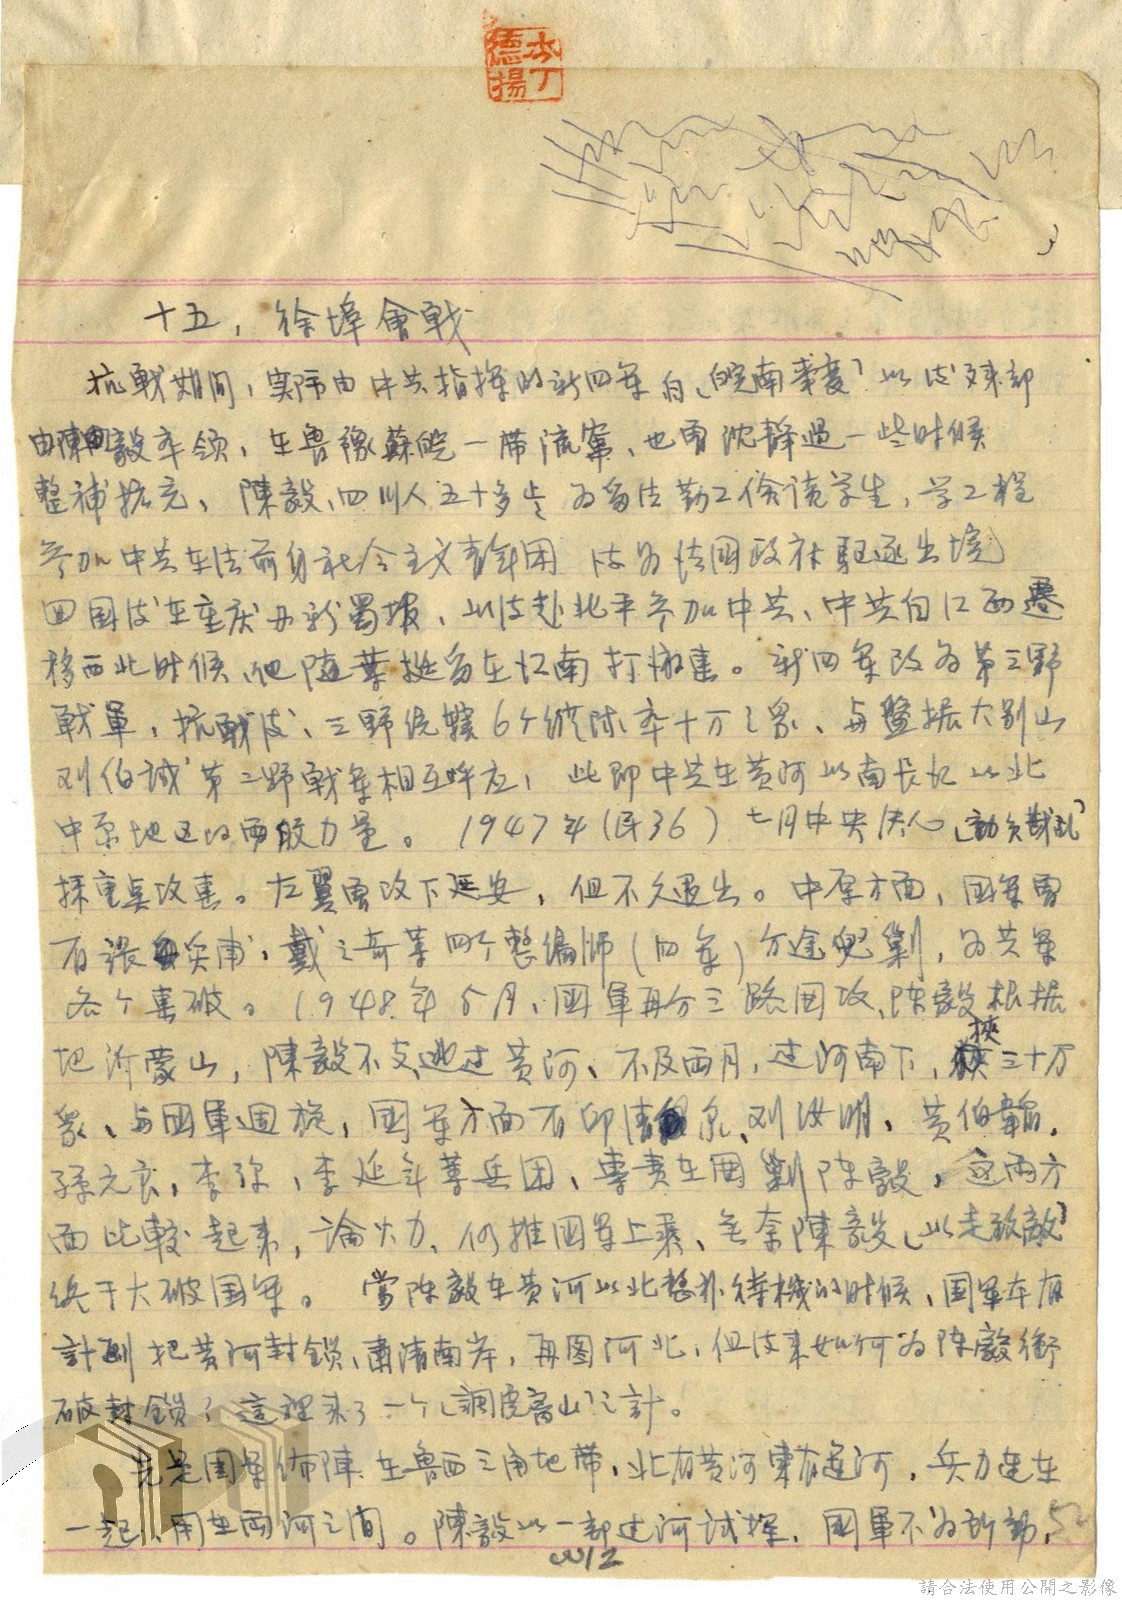 德 本
揚 丁
十五，徐埠會戰
抗戰期間，实际由中共指揮的新四军自「皖南事变」以后残部
由陳毅率领，在鲁豫蘇皖一帶流窜，也曾沈靜過一些时候
整補扩充，陳毅，四川人五十多岁 为留法勤工俭读学生，学工程
参加中共在法前身社会主义青年团 后为法國政府驱逐出境
回国后在重庆办新蜀报，以后赴北平参加中共，中共自江西
移西北时候，他随葉挺留在江南打散击。新四军改为第三野
戰軍，抗戰后，三野统辖6个纵队率十万之众，与盤据大别山
刘伯诚第二野戰军相互呼应，此即中共在黄河以南长江以北
中原地区的两股力量。1947年（民36）七月中央决心「動员戡乱」
採重点攻击。左翼曾攻下延安，但不久退出。中原方面，国军曾
有張灵甫，戴之奇等四个整编师（四军）分途兜剿，为共军
各个击破。1948年5月，國軍再分三路围攻陈毅根据
地沂蒙山，陳毅不支，逃过黄河，不及两月，过河南下，挾三十万
众，与國軍週旋，國军方面有邱清泉，刘汝明，黄伯韜，
孫元良，李弥，李延年等兵团，專责在围剿陳毅，这两方
面比較起来，論火力，仍推國军上乘，无奈陳毅「以走致敵」
终于大破国军。當陈毅在黄河以北整补待機的时候，国军本有
計劃把黄河封鎖，肃清南岸，再图河北，但后来如何为陳毅衝
破封鎖，這裡来了一个「調虎离山」之計。
先是国军佈陣在魯西三角地帶，北有黄河東有运河，兵力连在
一起，用在两河之间。陳毅以一部过河試探，國軍不为所動，
12
請合法使用公開之影像